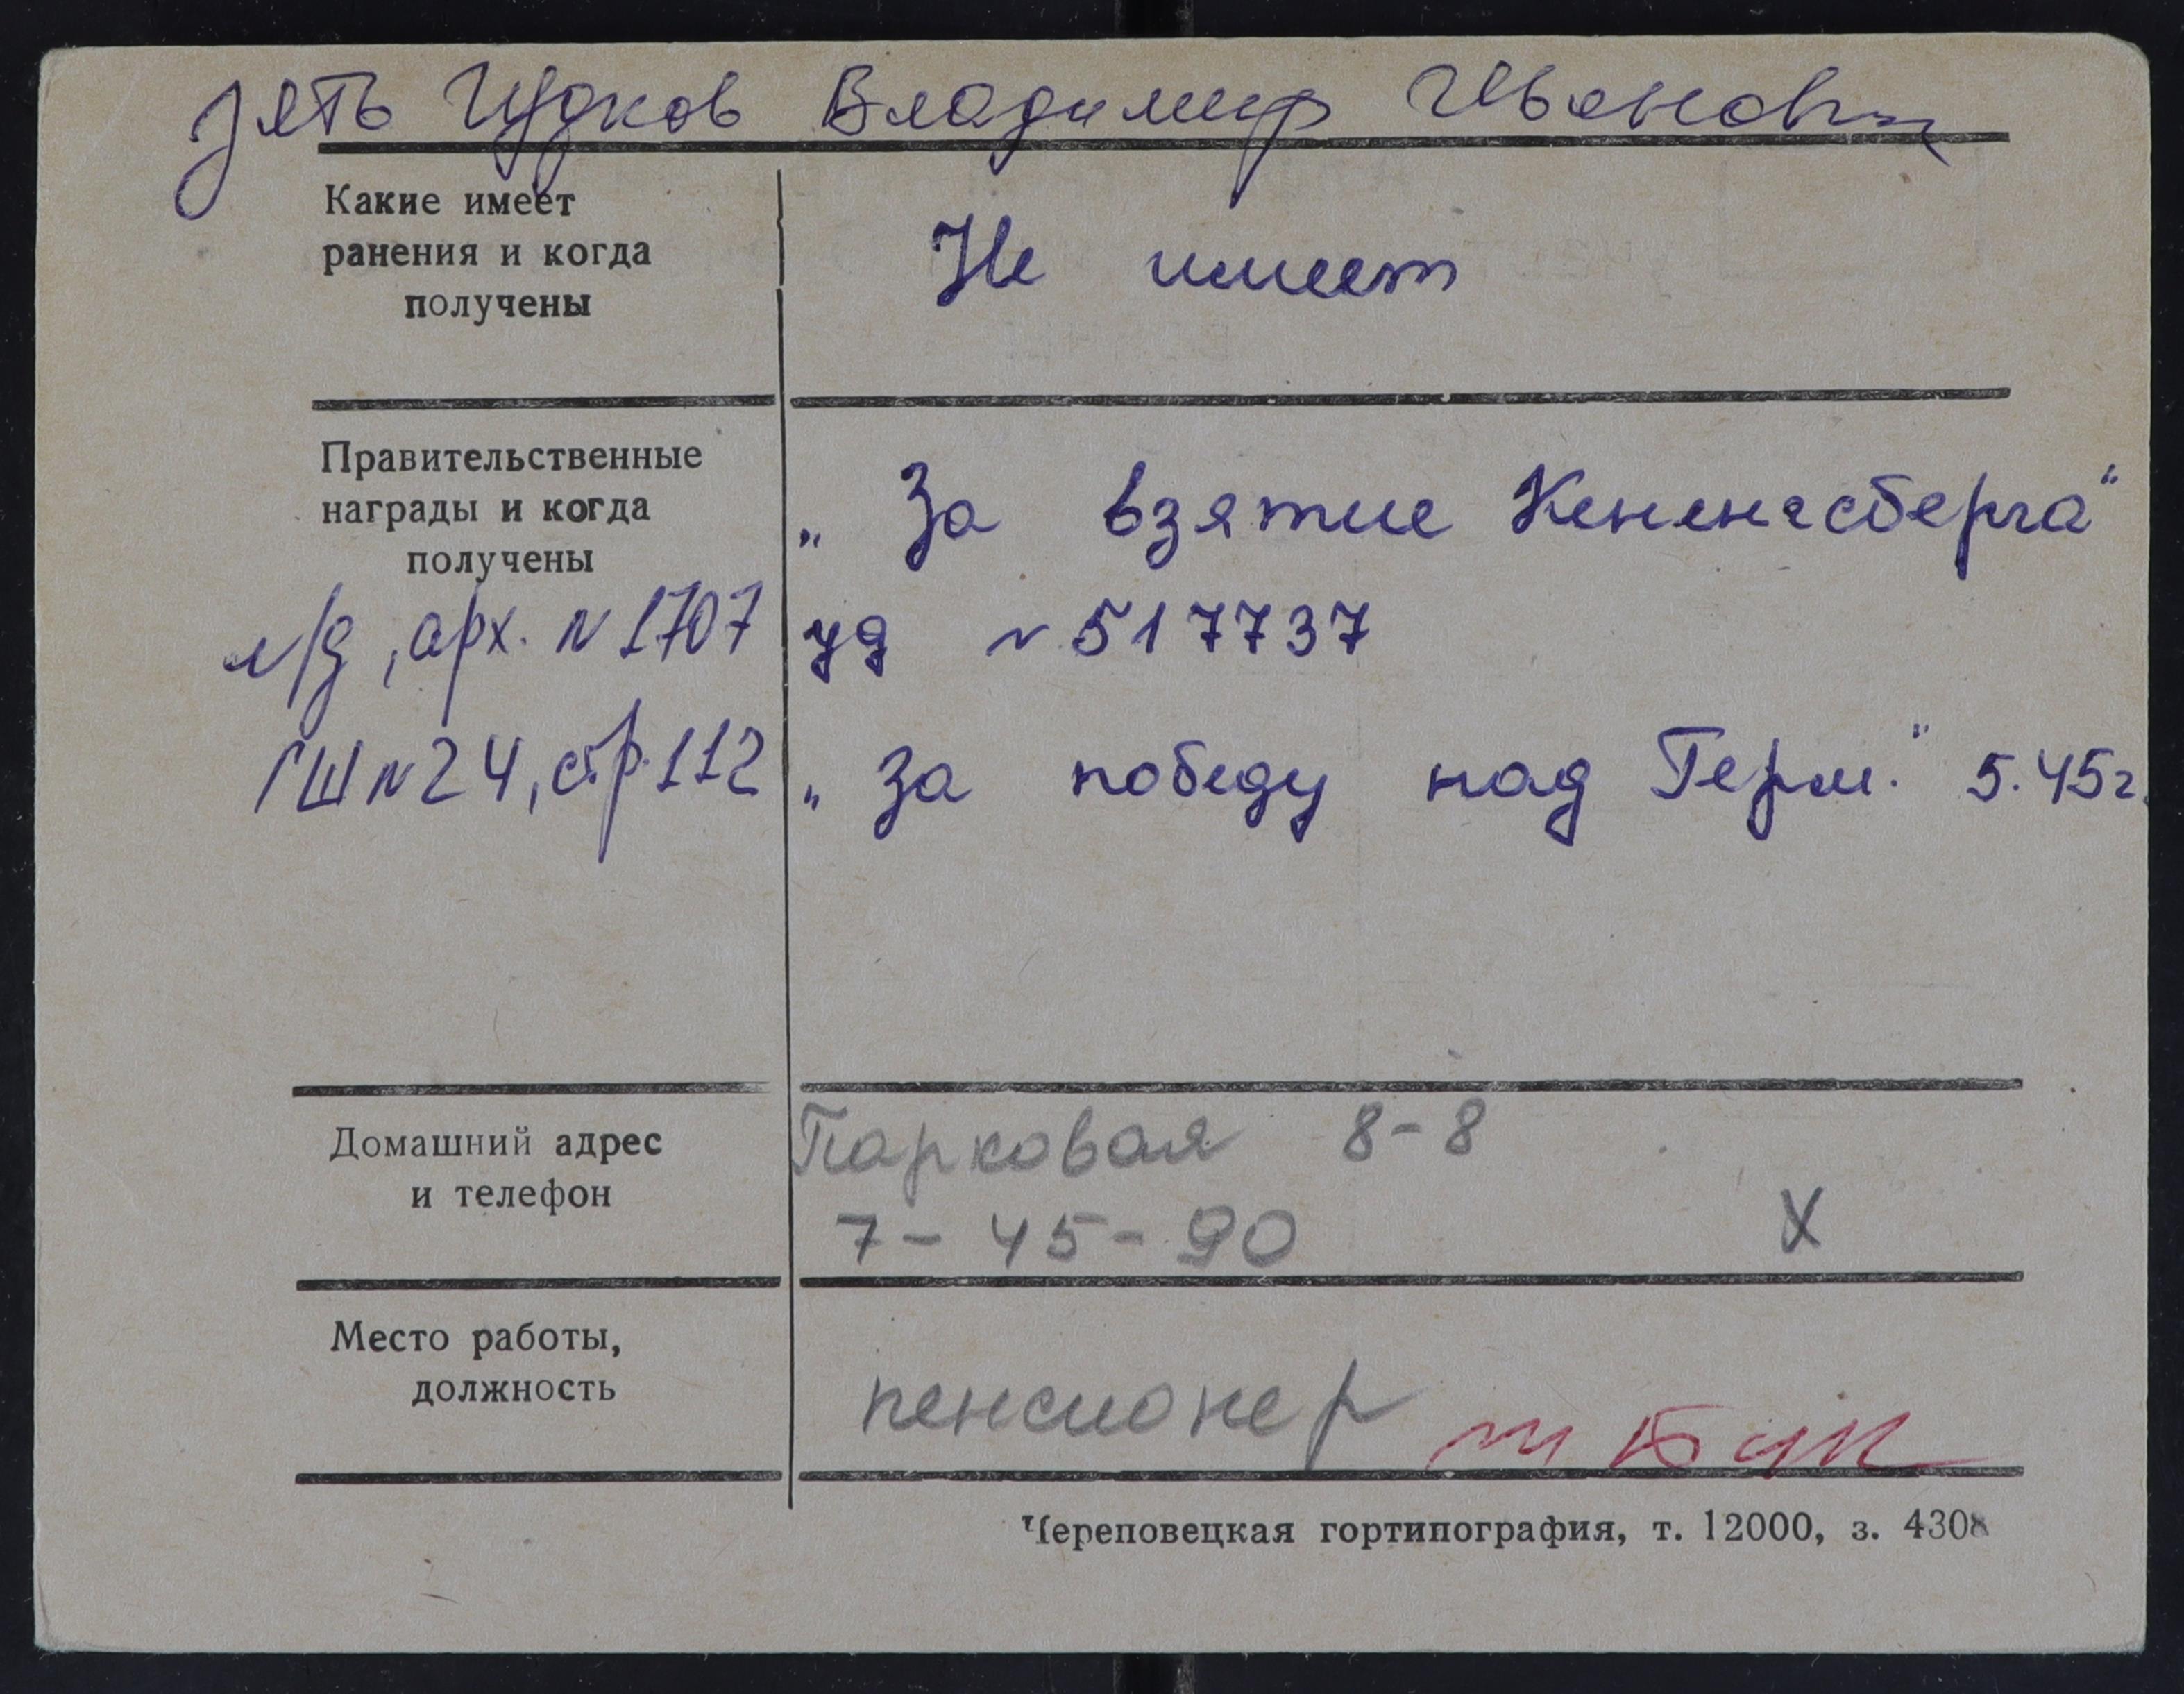 зять Чудков Владимир Иванович
Какие имеет
ранения и когда
получены
Не имеет
Правительственные
награды и когда
получены
„За взятие Кененгсберга"
уд N 517737
„За победу над Герм." 5.45г.
л/д, арх. N 1707
ГШ N 24, стр. 112
Домашний адрес
и телефон
Парковая 8-8
7-45-90
X
Место работы,
должность
пенсионер
Череповецкая гортипография, т. 12000, з. 4308